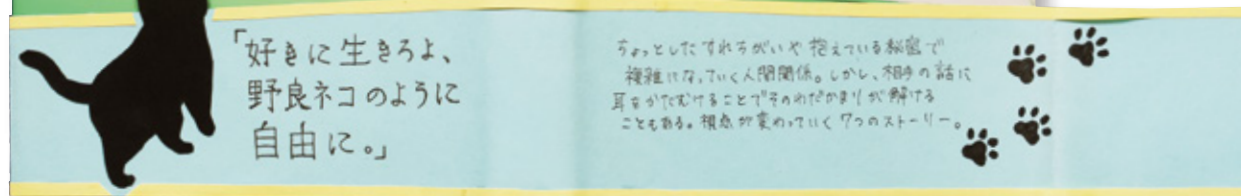 「好きに生きろよ、
野良ネコのように
自由に。」
ちょっとしたすれちがいや抱えている秘密で
複雑になっていく人間関係。しかし、相手の話に
耳をかたむけることでそのわだかまりが解ける
こともある。視点が変わっていく7つのストーリー。